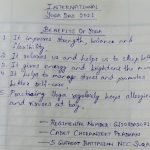 INTERNATIONAL
YOGA DAY 2021
BENEFITS OF YOGA
1 It improves strength, balance and
flexibility.
2 It relaxes us and helps us to sleep better
3 It gives energy and brightens the mood
4 It helps to manage stress and promotes
better self-care.
5 Practicing Yoga regularly keeps allergies
and viruses at bay.
- REGIMENTAL NUMBER
- CADET CHARANJEET
- 5 GUJARAT BATTALION NCC SURAT